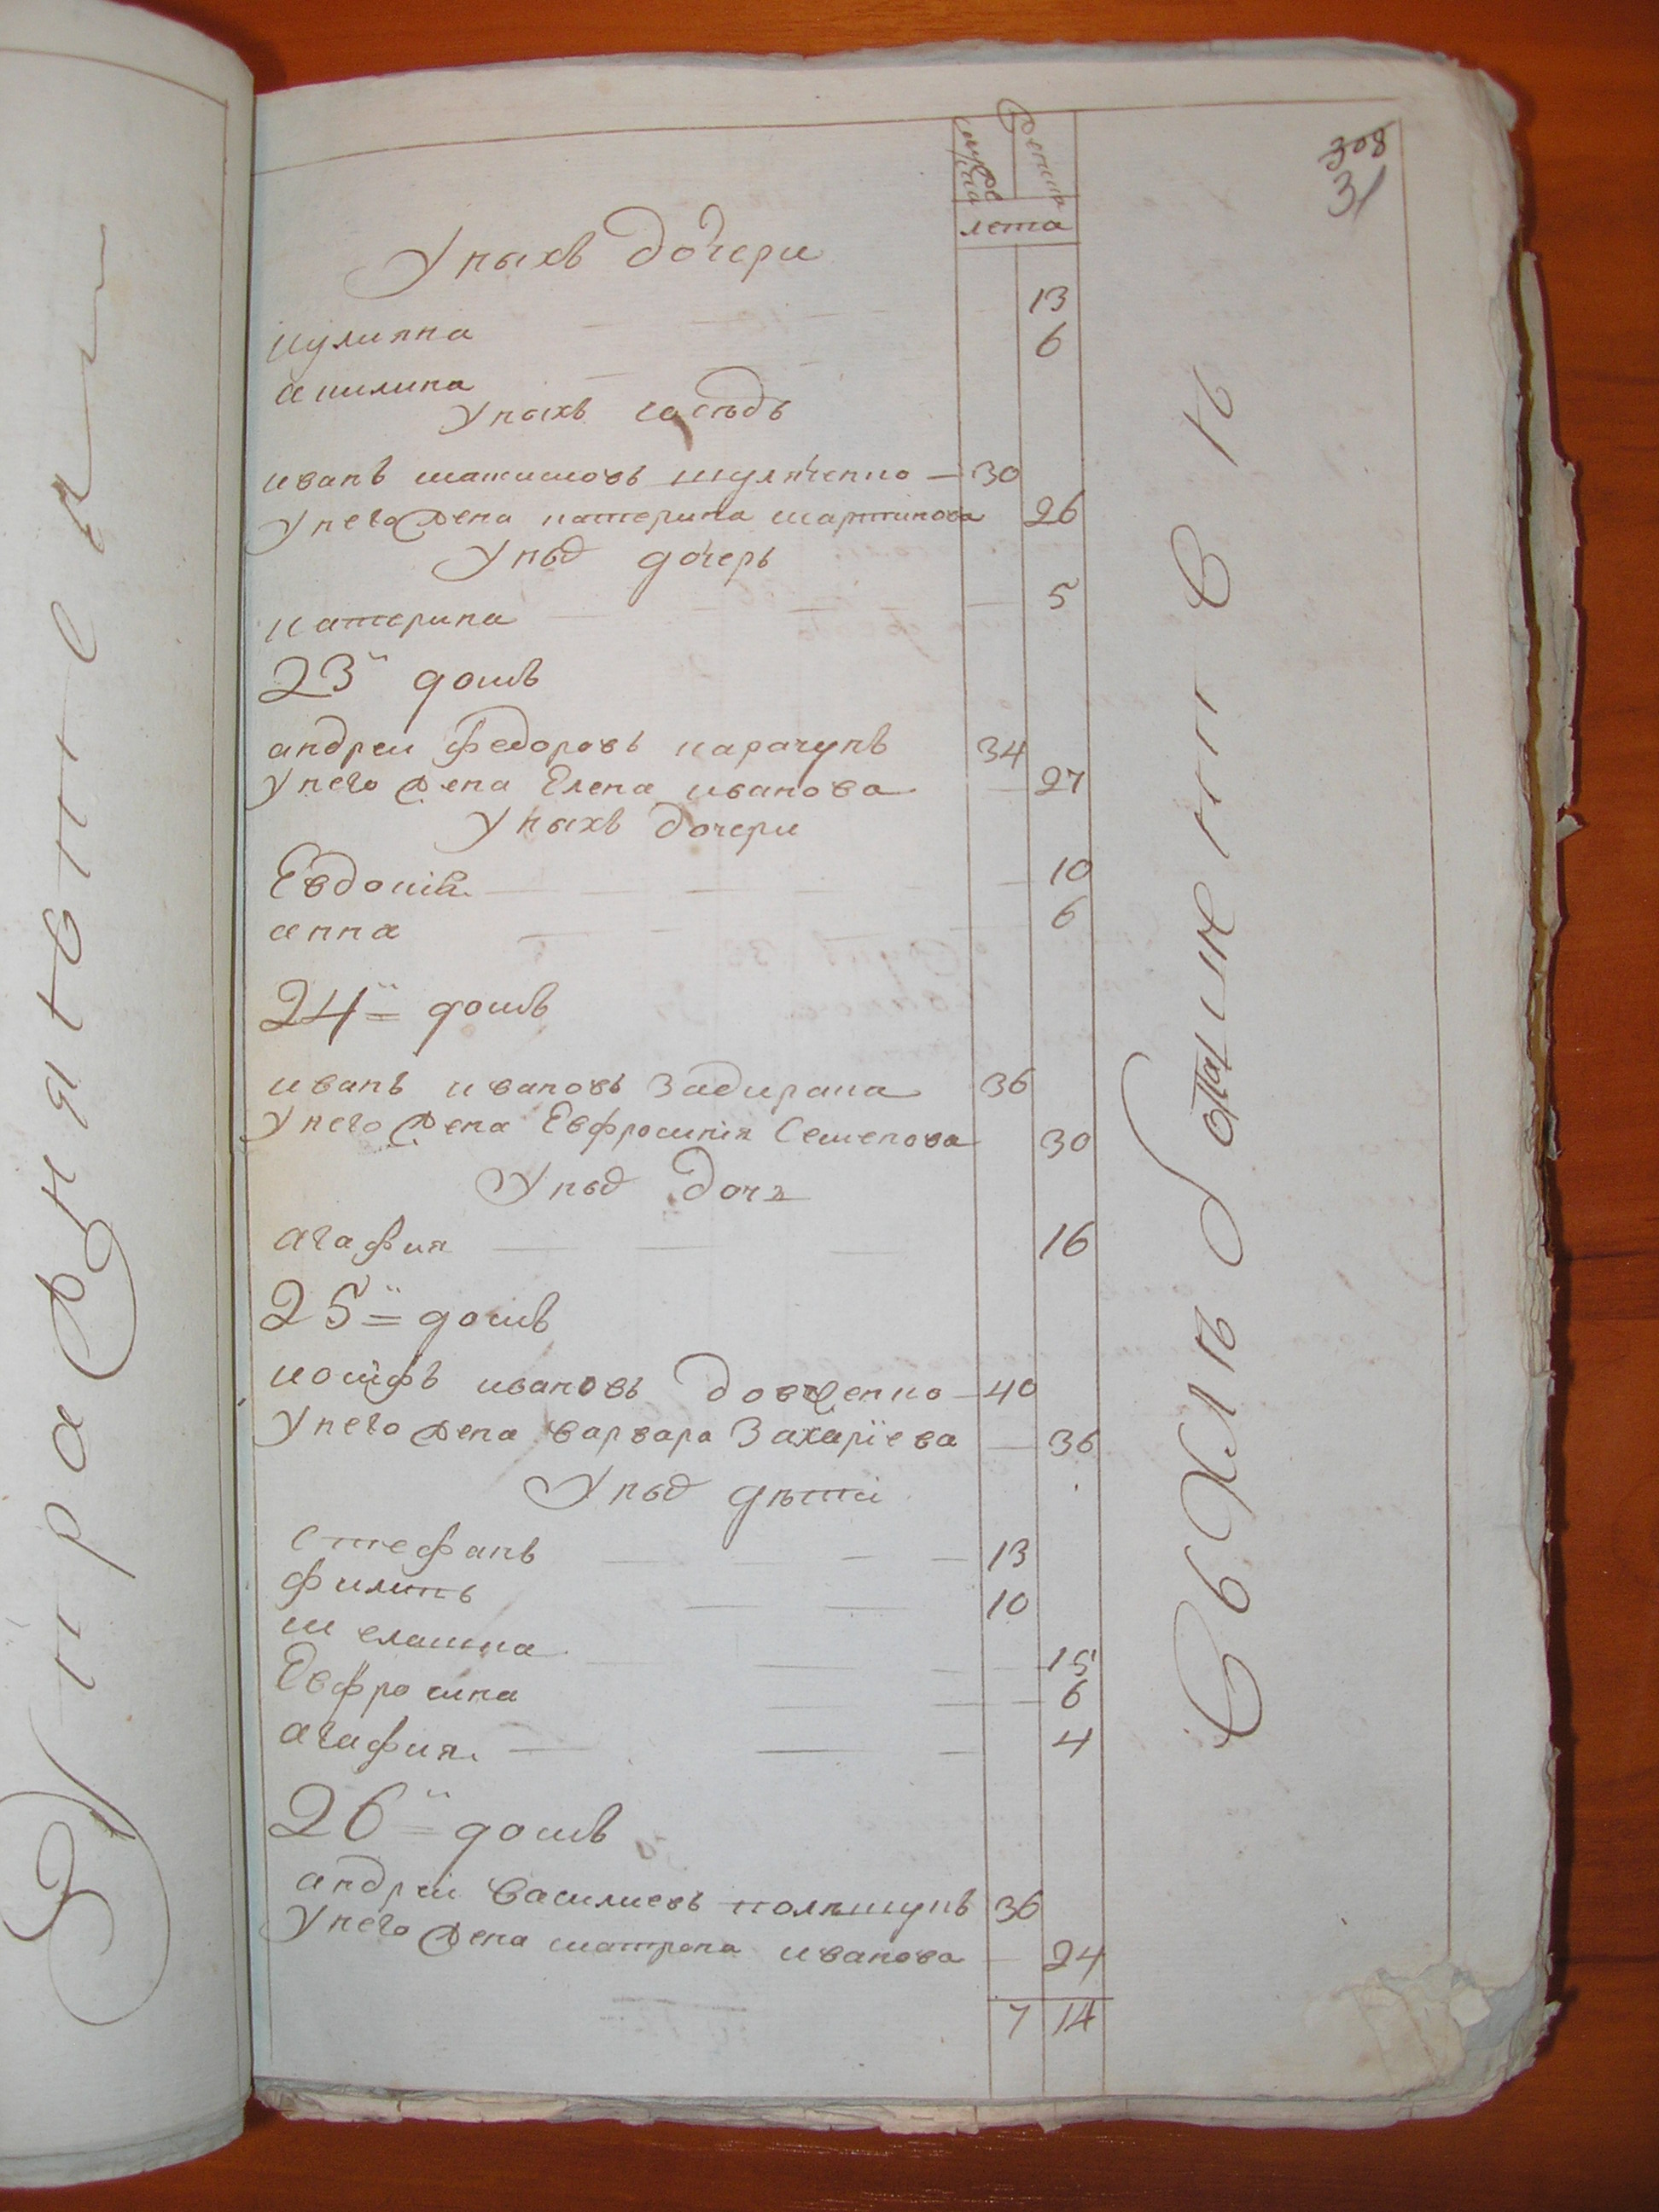 308
31
мужеска
женска
лета
У ныхъ дочери
иулияна 13
акилина 6
У ныхъ соседъ
иванъ мак­симовъ шуляченко 30
У него жена катерина мартинова 26
У ных дочерь
катерина 5
23й домъ
андреи Федоровъ карачунъ 34
У него жена Елена иванова 27
У ныхъ дочери
Евдокия 10
анна 6
24й домъ
иванъ ивановъ Задирака 36
У него жена Евфросиния Семенова 30
У ных дочь
агафия 16
25й домъ
иосифъ ивановъ довженко 40
У него жена варвара Захариева 36
У ных дѣти
стефанъ 13
филипъ 10
меланка 15
Евфросина 6
агафия 4
26й домъ
андреи Василиевъ полишукъ 36
У него жена матрона иванова 24
7 14